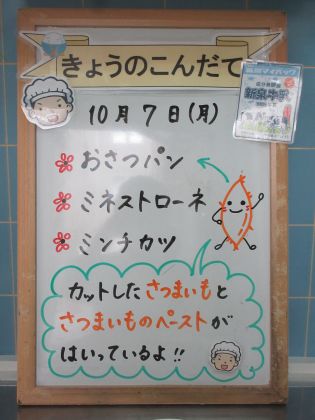 きょうのこんだて
10月7日(月)
おさつパン
ミネストローネ
ミンチカツ
カットしたさつまいもと
さつまいものペーストが
はいっているよ!!